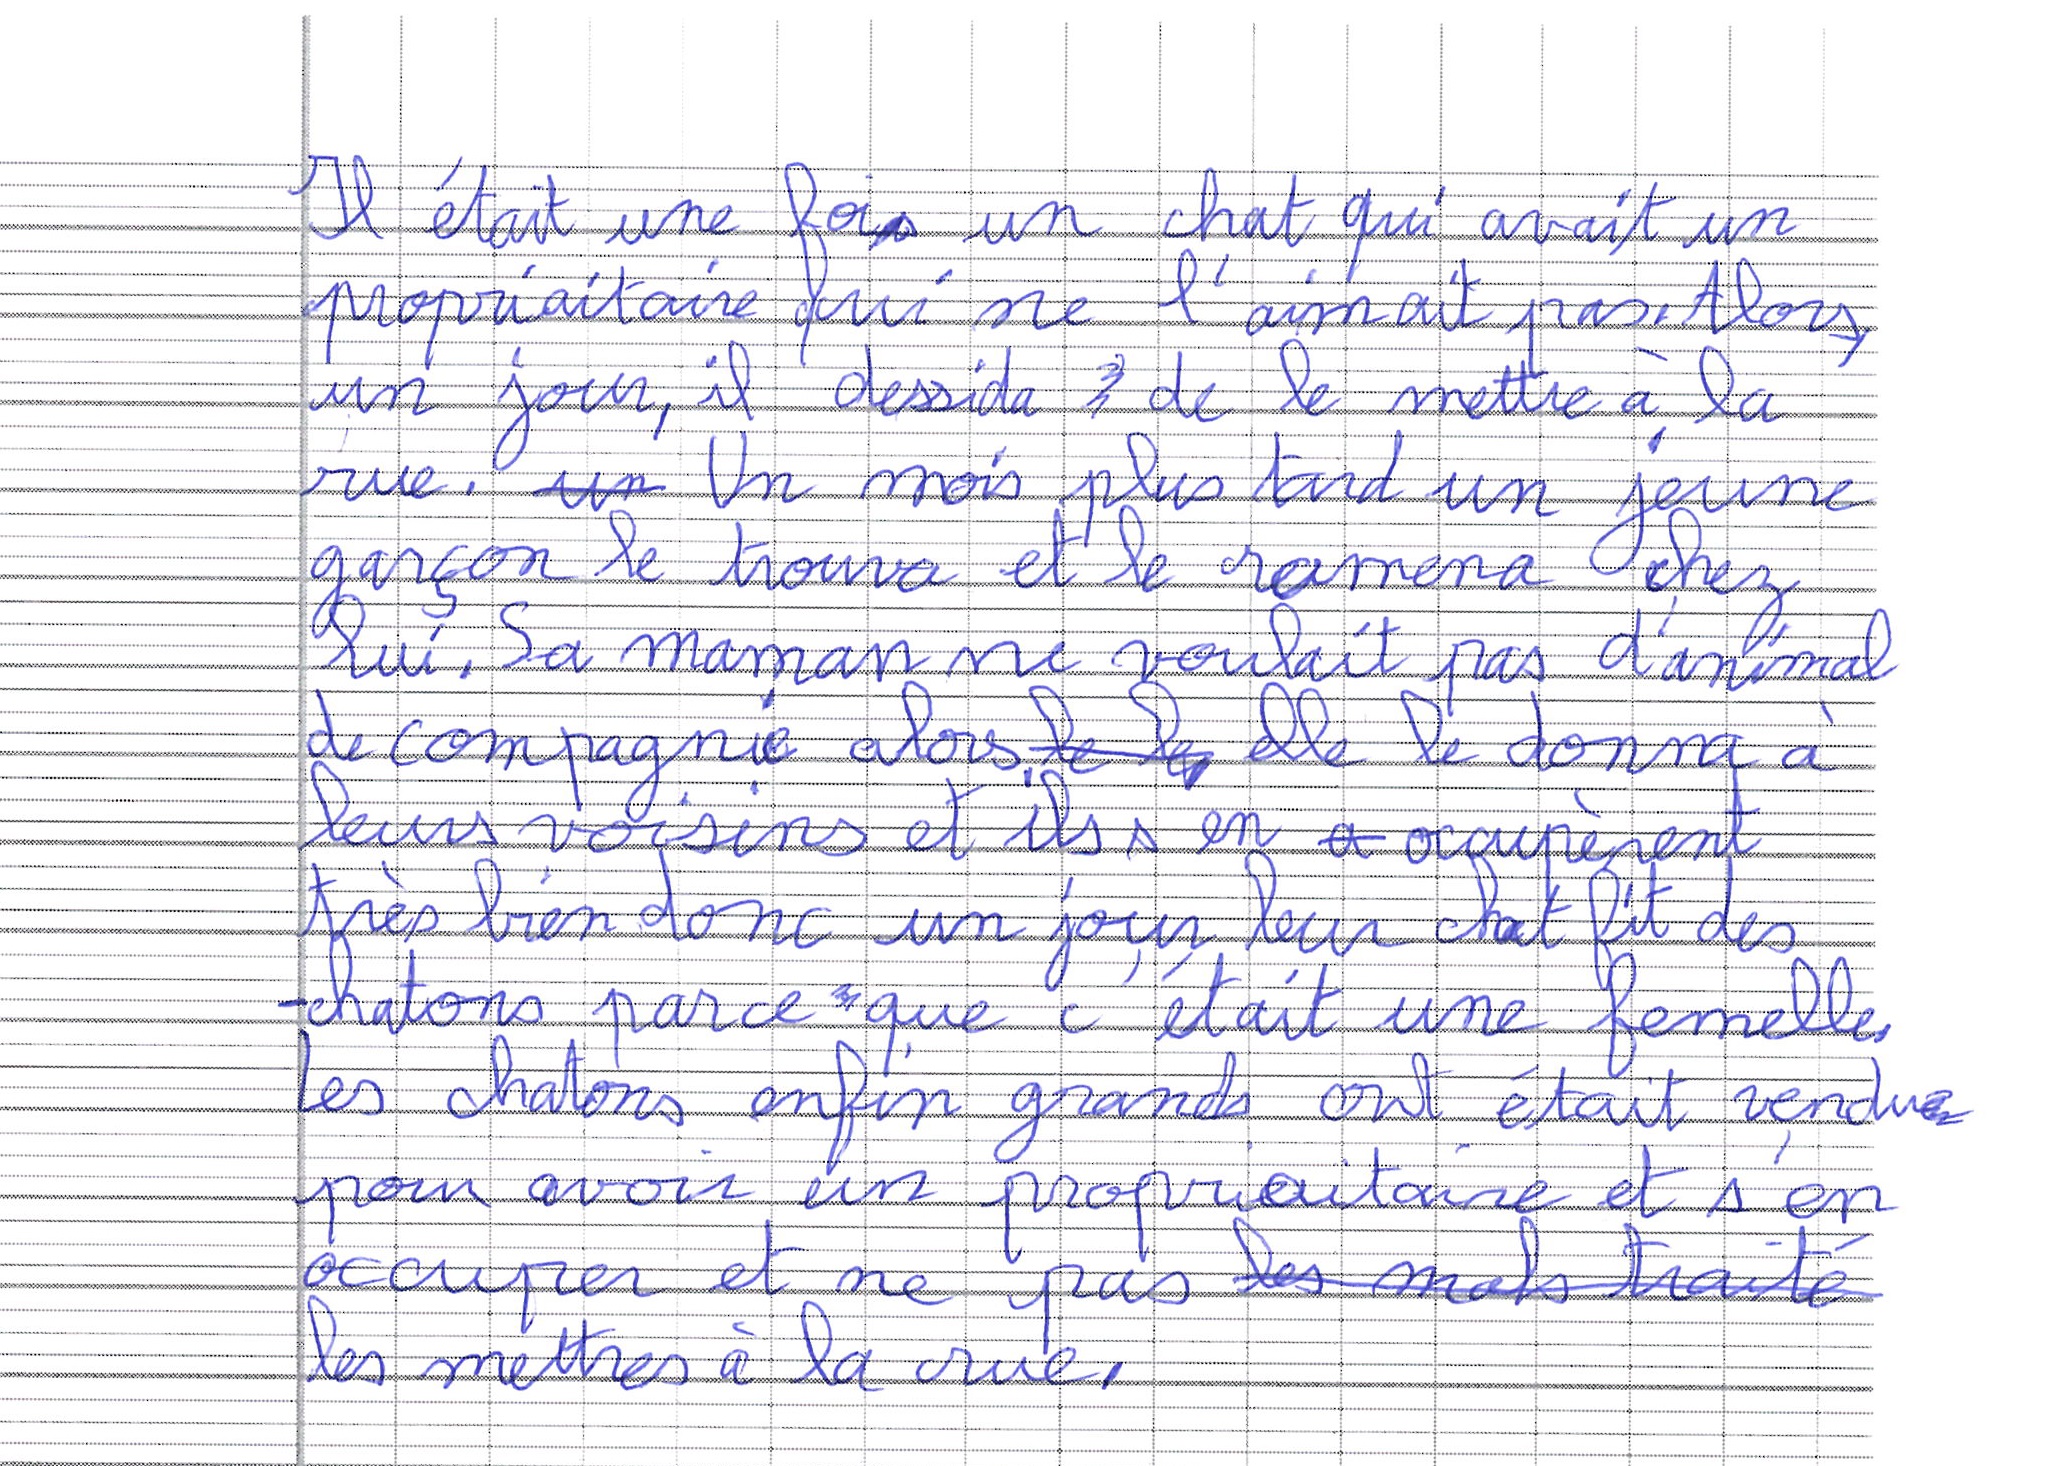 Il était une fois un chat qui avait un
propriaitaire qui ne l'aimait pas. Alors,
un jour, il dessida de le mettre à la
rue. un Un mois plus tard un jeune
garçon le trouva et le ramena chez
lui. Sa maman ne voulait pas d'animal
de compagnie alors le le elle le donna à
leurs voisins et ils s en a occupèrent
très bien donc un jour leur chat fit des
chatons parce que c'était une femelle.
Les chatons enfin grands ont était vendu
pour avoir un propriaitaire et s'en
occuper et ne pas les mals traité
les mettres à la rue.